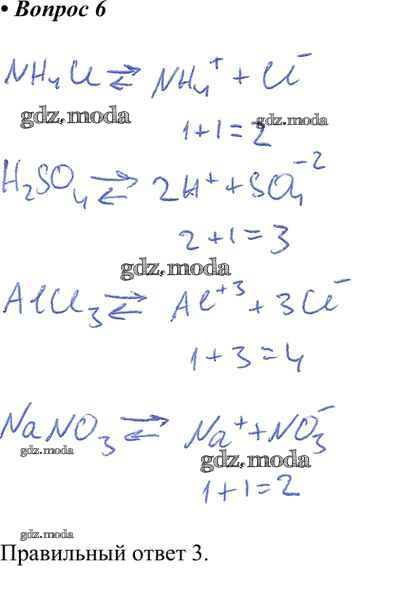 • Вопрос 6
NH₄Cl ⇄ NH₄⁺ + Cl⁻
gdz.moda
gdz.moda
1+1=2
H₂SO₄ ⇄ 2H⁺ + SO₄⁻²
2+1=3
gdz.moda
AlCl₃ ⇄ Al⁺³ + 3Cl⁻
1+3=4
NaNO₃ ⇄ Na⁺ + NO₃⁻
gdz.moda
gdz.moda
1+1=2
gdz.moda
Правильный ответ 3.